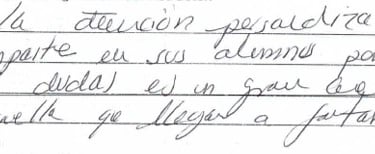 la atención persaldiza
parte en sus alumnos pa
dudas es un gran leg
ella qe llegan a